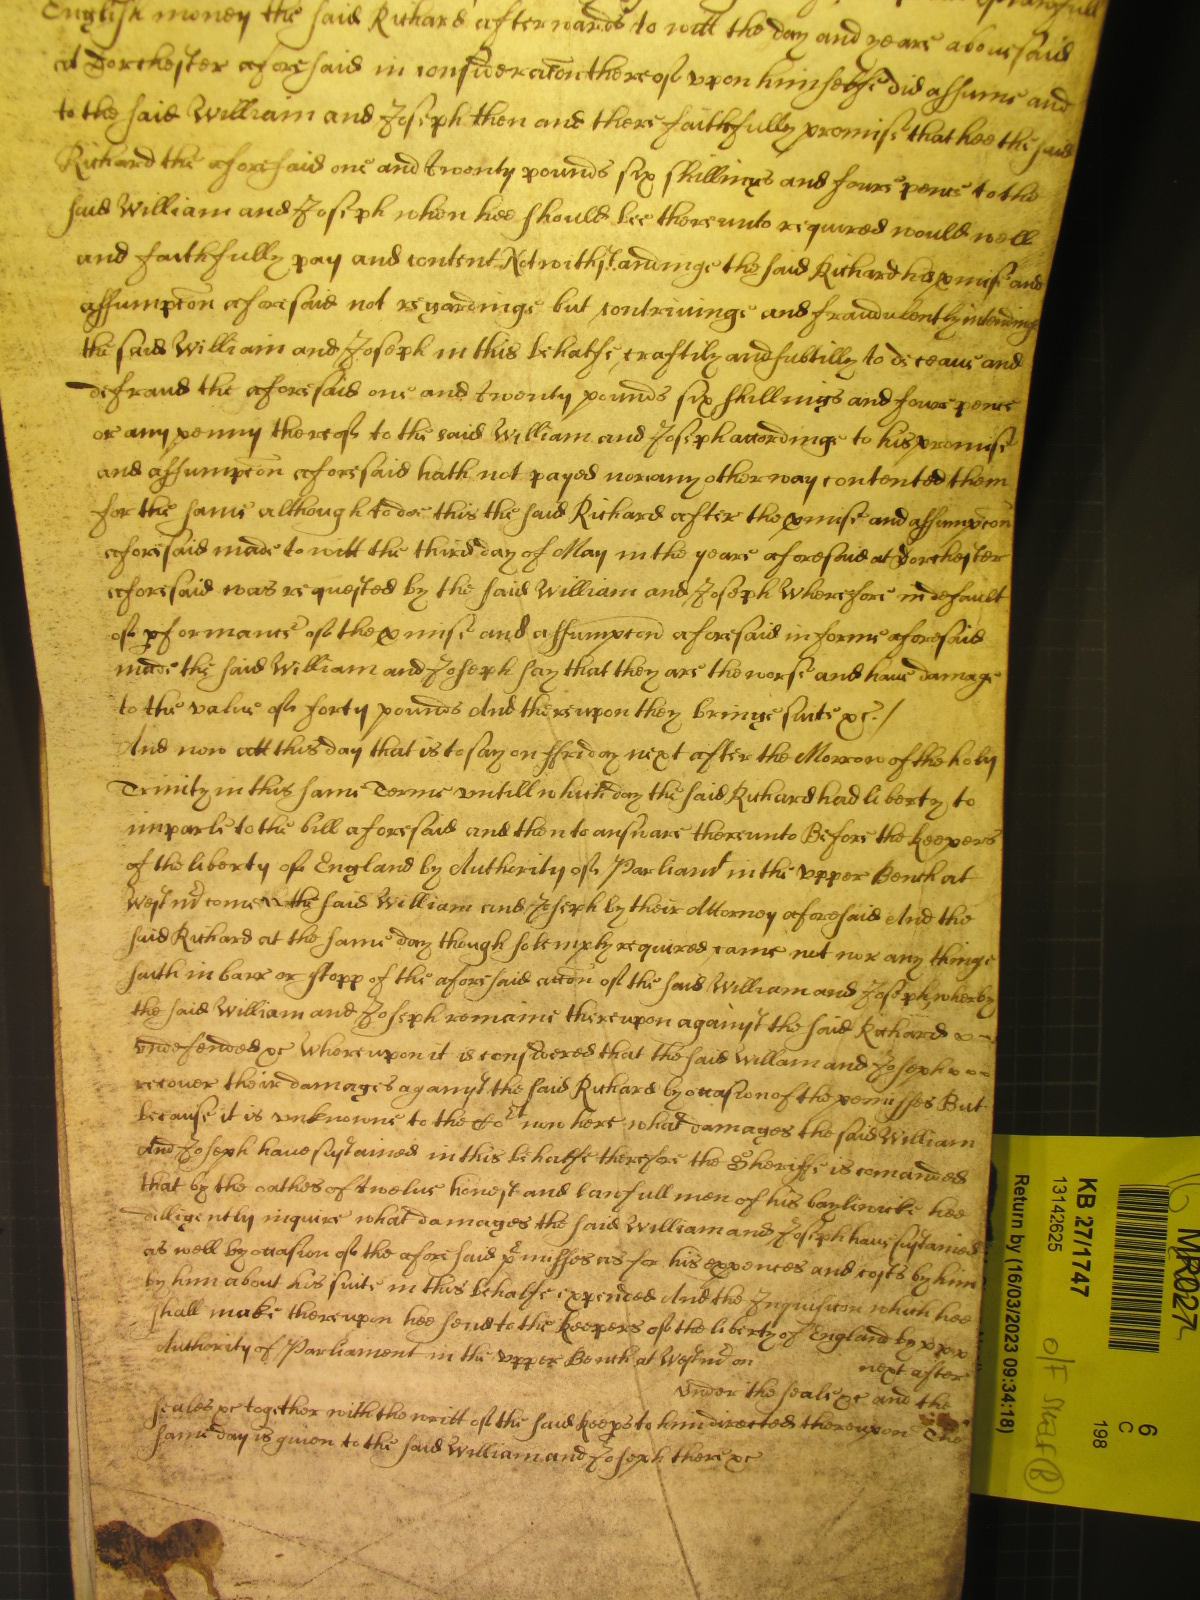 English money the said Richard afterwards to witt the day and yeare abovesaid
at Dorchester aforesaid in consideracon thereof upon himselfe did assume and
to the said William and Joseph then and there faithfully promise that hee the said
Richard the aforesaid one and twenty pounds six shillings and foure pence to the
said William and Joseph when hee should bee thereunto required would well
and faithfully pay and content Notwithstandinge the said Richard his pmise and
assumpcon aforesaid not regardinge but contrivinge and fraudulently intendinge
the said William and Joseph in this behalfe craftily and subtilly to deceave and
defraud the aforesaid one and twenty pounds six shillings and foure pence
or any penny thereof to the said William and Joseph accordinge to his promise
and assumpcon aforesaid hath not payed nor any other way contented them
for the same although to doe this the said Richard after the pmise and assumpcon
aforesaid made to witt the third day of May in the yeare aforesaid at Dorchester
aforesaid was requested by the said William and Joseph Wherefore in default
of pformance of the pmise and assumpcon aforesaid in forme aforesaid
made the said William and Joseph say that they are the worse and have damage
to the value of forty pounds And thereupon they bringe suite &c. /
And now att this day that is to say on ffriday next after the Morrow of the holy
Trinity in this same Terme untill which day the said Richard had liberty to
imparle to the bill aforesaid and then to answare thereunto Before the keepers
of the liberty of England by Authority of Parliamt in the upper Bench at
Westmr cometh the said William and Joseph by their Attorney aforesaid And the
said Richard at the same day though solemply required came not nor any thinge
saith in barr or stopp of the aforesaid accon of the said William and Joseph wherby
the said William and Joseph remaine thereupon against the said Richard
undefended &c Whereupon it is considered that the said William and Joseph
recover their damages against the said Richard by occasion of the pemisses But
because it is unknowne to the Cort now here what damages the said William
And Joseph have sustained in this behalfe therefore the Sheriffe is comanded
that by the oathes of twelve honest and lawfull men of his bayliwicke hee
diligently inquire what damages the said William and Joseph have sustained
as well by occasion of the aforesaid pmisses as for his expences and costs by him
by him about his suite in this behalfe expended And the Inquisicon which hee
shall make thereupon hee send to the keepers of the liberty of England by
Authority of Parliament in the upper Bench at Westmr on next after
under the seale &c and the
seales &c together with the writt of the said keeps to him directed thereupon The
same day is given to the said William and Joseph there &c
KB 27/1747
13142625
Return by (16/03/2023 09:34:18)
6
C
198